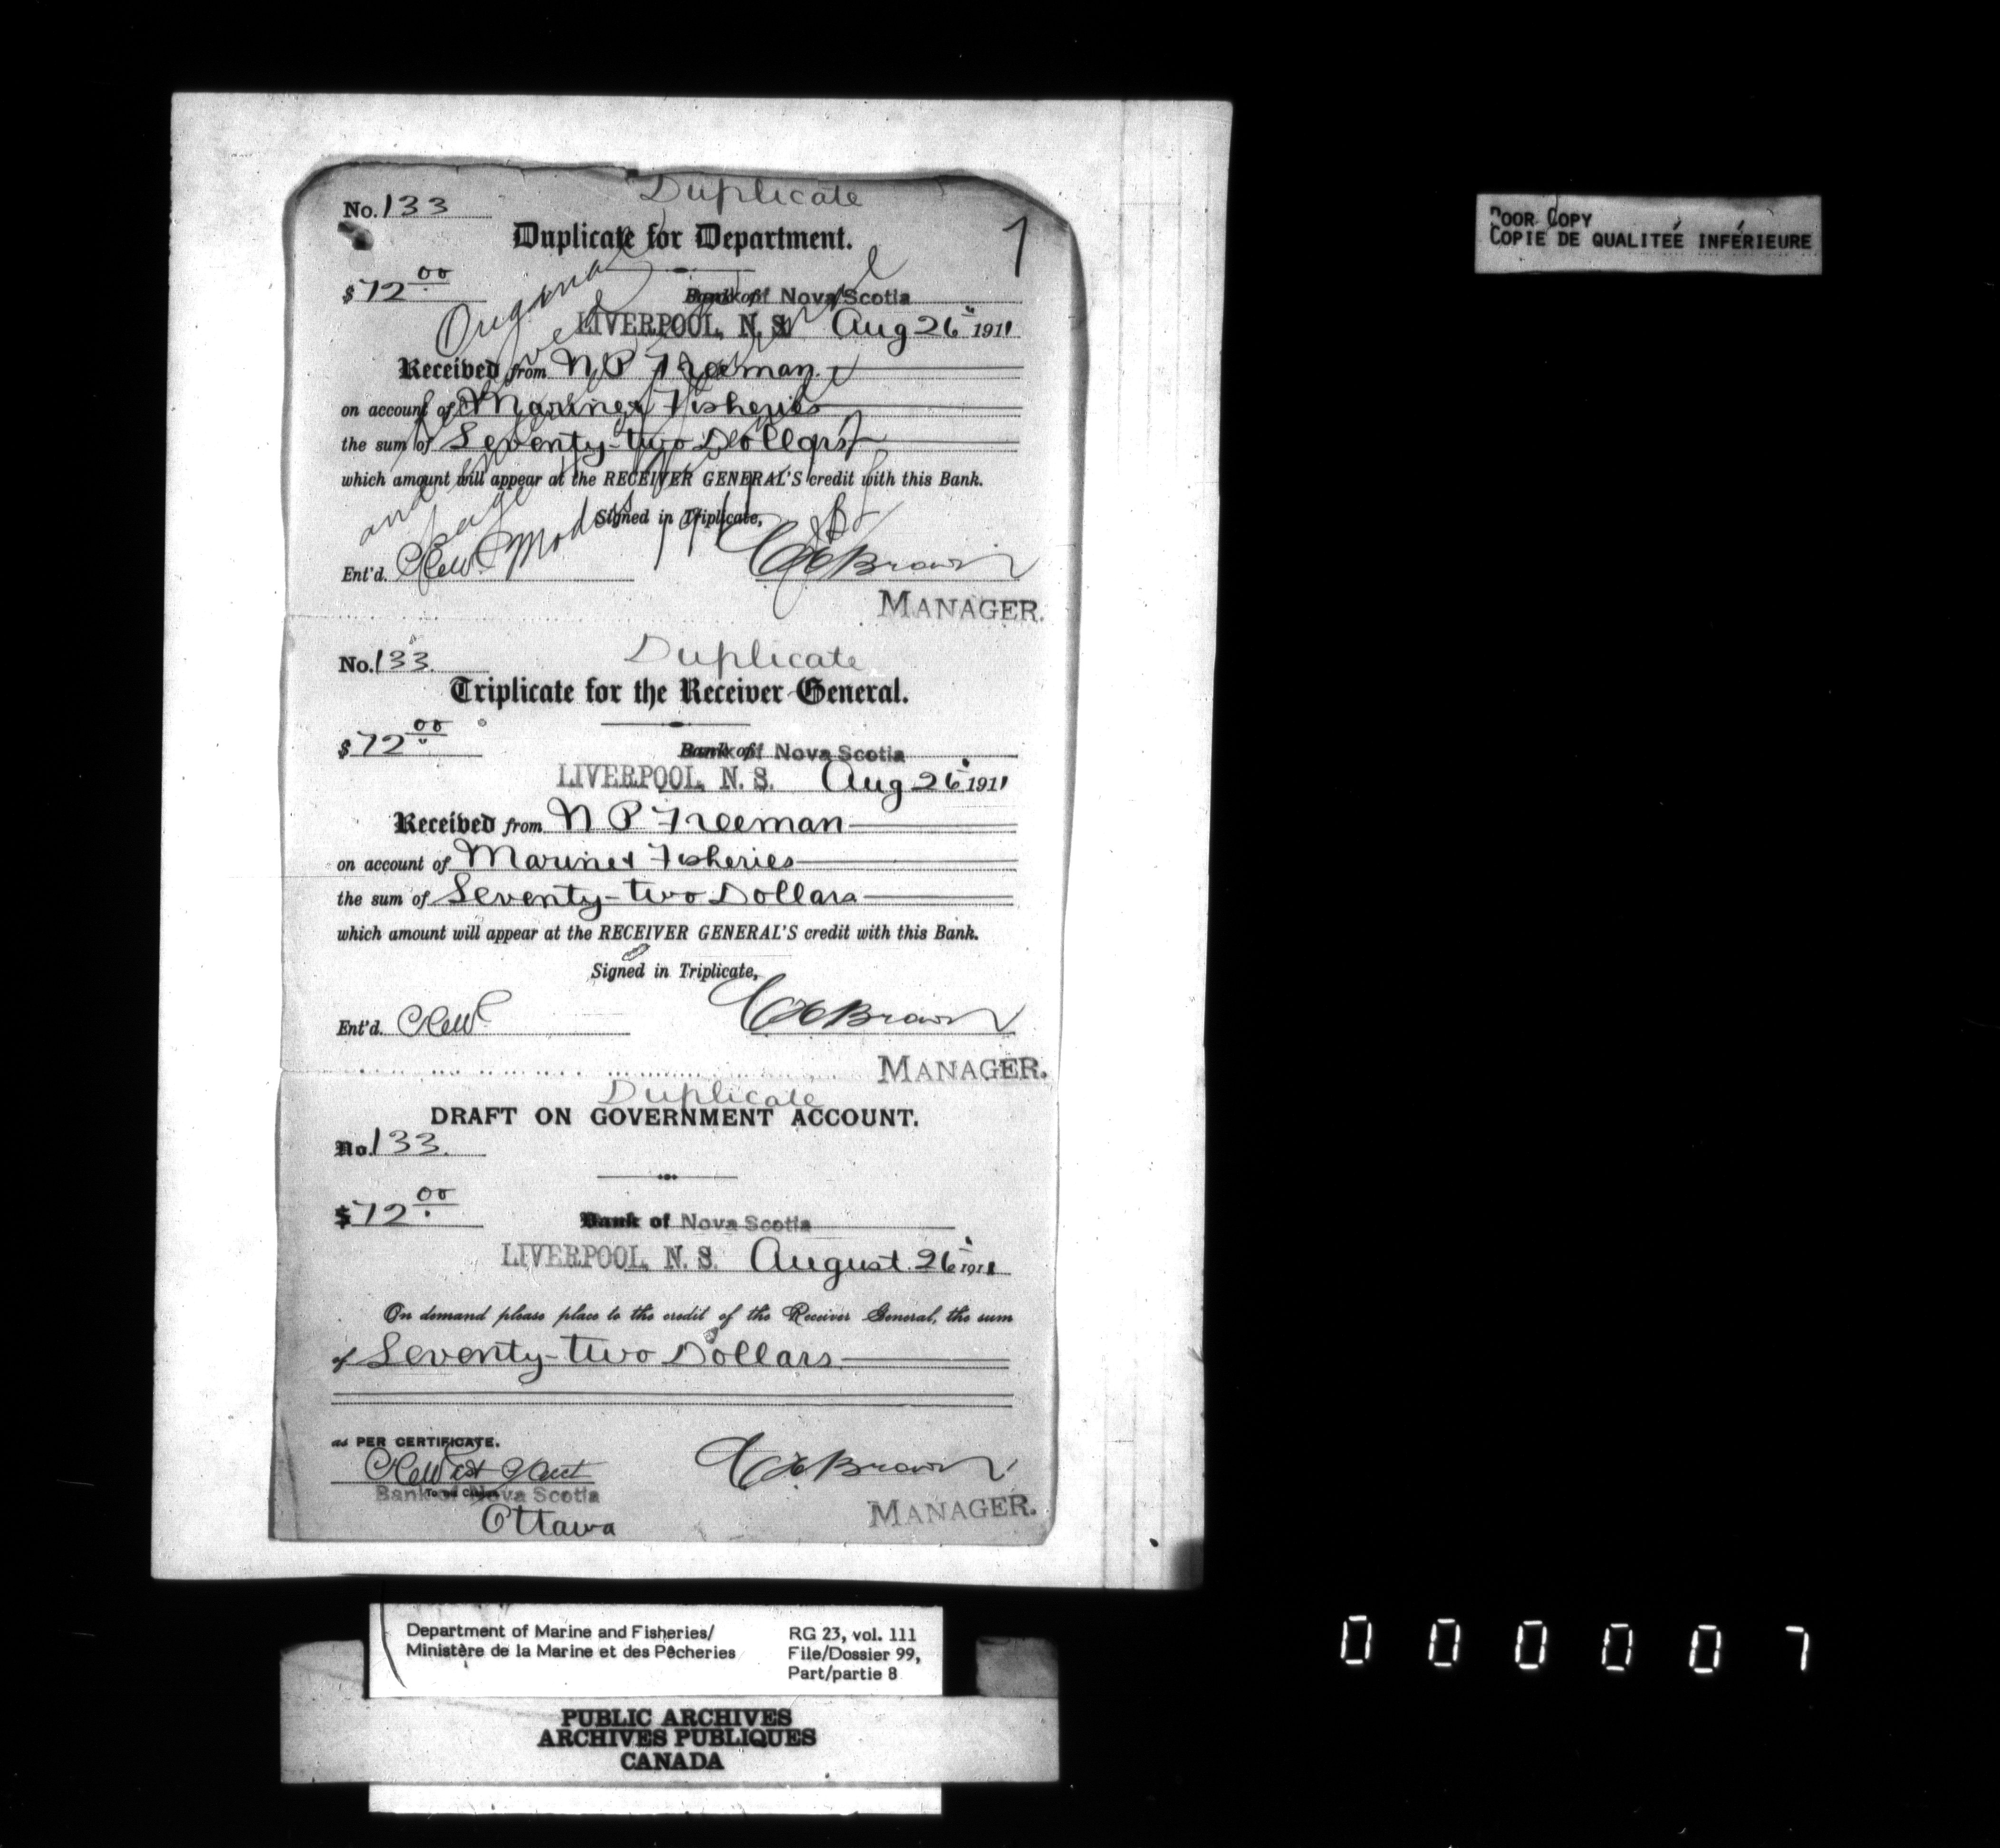 Duplicate
No. 133
Duplicate for Department.
1
$ 72 00
Bank of Nova Scotia
LIVERPOOL, N. S. Aug 26" 1911
Received from N P Freeman
on account of Marine & Fisheries
the sum of Seventy-two Dollars
which amount will appear at the RECEIVER GENERAL'S credit with this Bank.
Original
and
page
Signed in Triplicate,
Ent'd.
Brown
MANAGER.
Duplicate
No. 133.
Triplicate for the Receiver General.
$ 72 00
Bank of Nova Scotia
LIVERPOOL, N. S. Aug 26" 1911
Received from N P Freeman
on account of Marine & Fisheries
the sum of Seventy-two Dollars
which amount will appear at the RECEIVER GENERAL'S credit with this Bank.
Signed in Triplicate,
Ent'd.
Brown
MANAGER.
Duplicate
DRAFT ON GOVERNMENT ACCOUNT.
No. 133.
$ 72 00
Bank of Nova Scotia
LIVERPOOL, N. S. August 26" 1911
On demand please place to the credit of the Receiver General, the sum
of Seventy-two Dollars
as PER CERTIFICATE.
Brown
Bank of Nova Scotia
Ottawa
MANAGER.
POOR COPY
COPIE DE QUALITEÉ INFÉRIEURE
Department of Marine and Fisheries/
Ministère de la Marine et des Pêcheries
RG 23, vol. 111
File/Dossier 99,
Part/partie 8
PUBLIC ARCHIVES
ARCHIVES PUBLIQUES
CANADA
000007